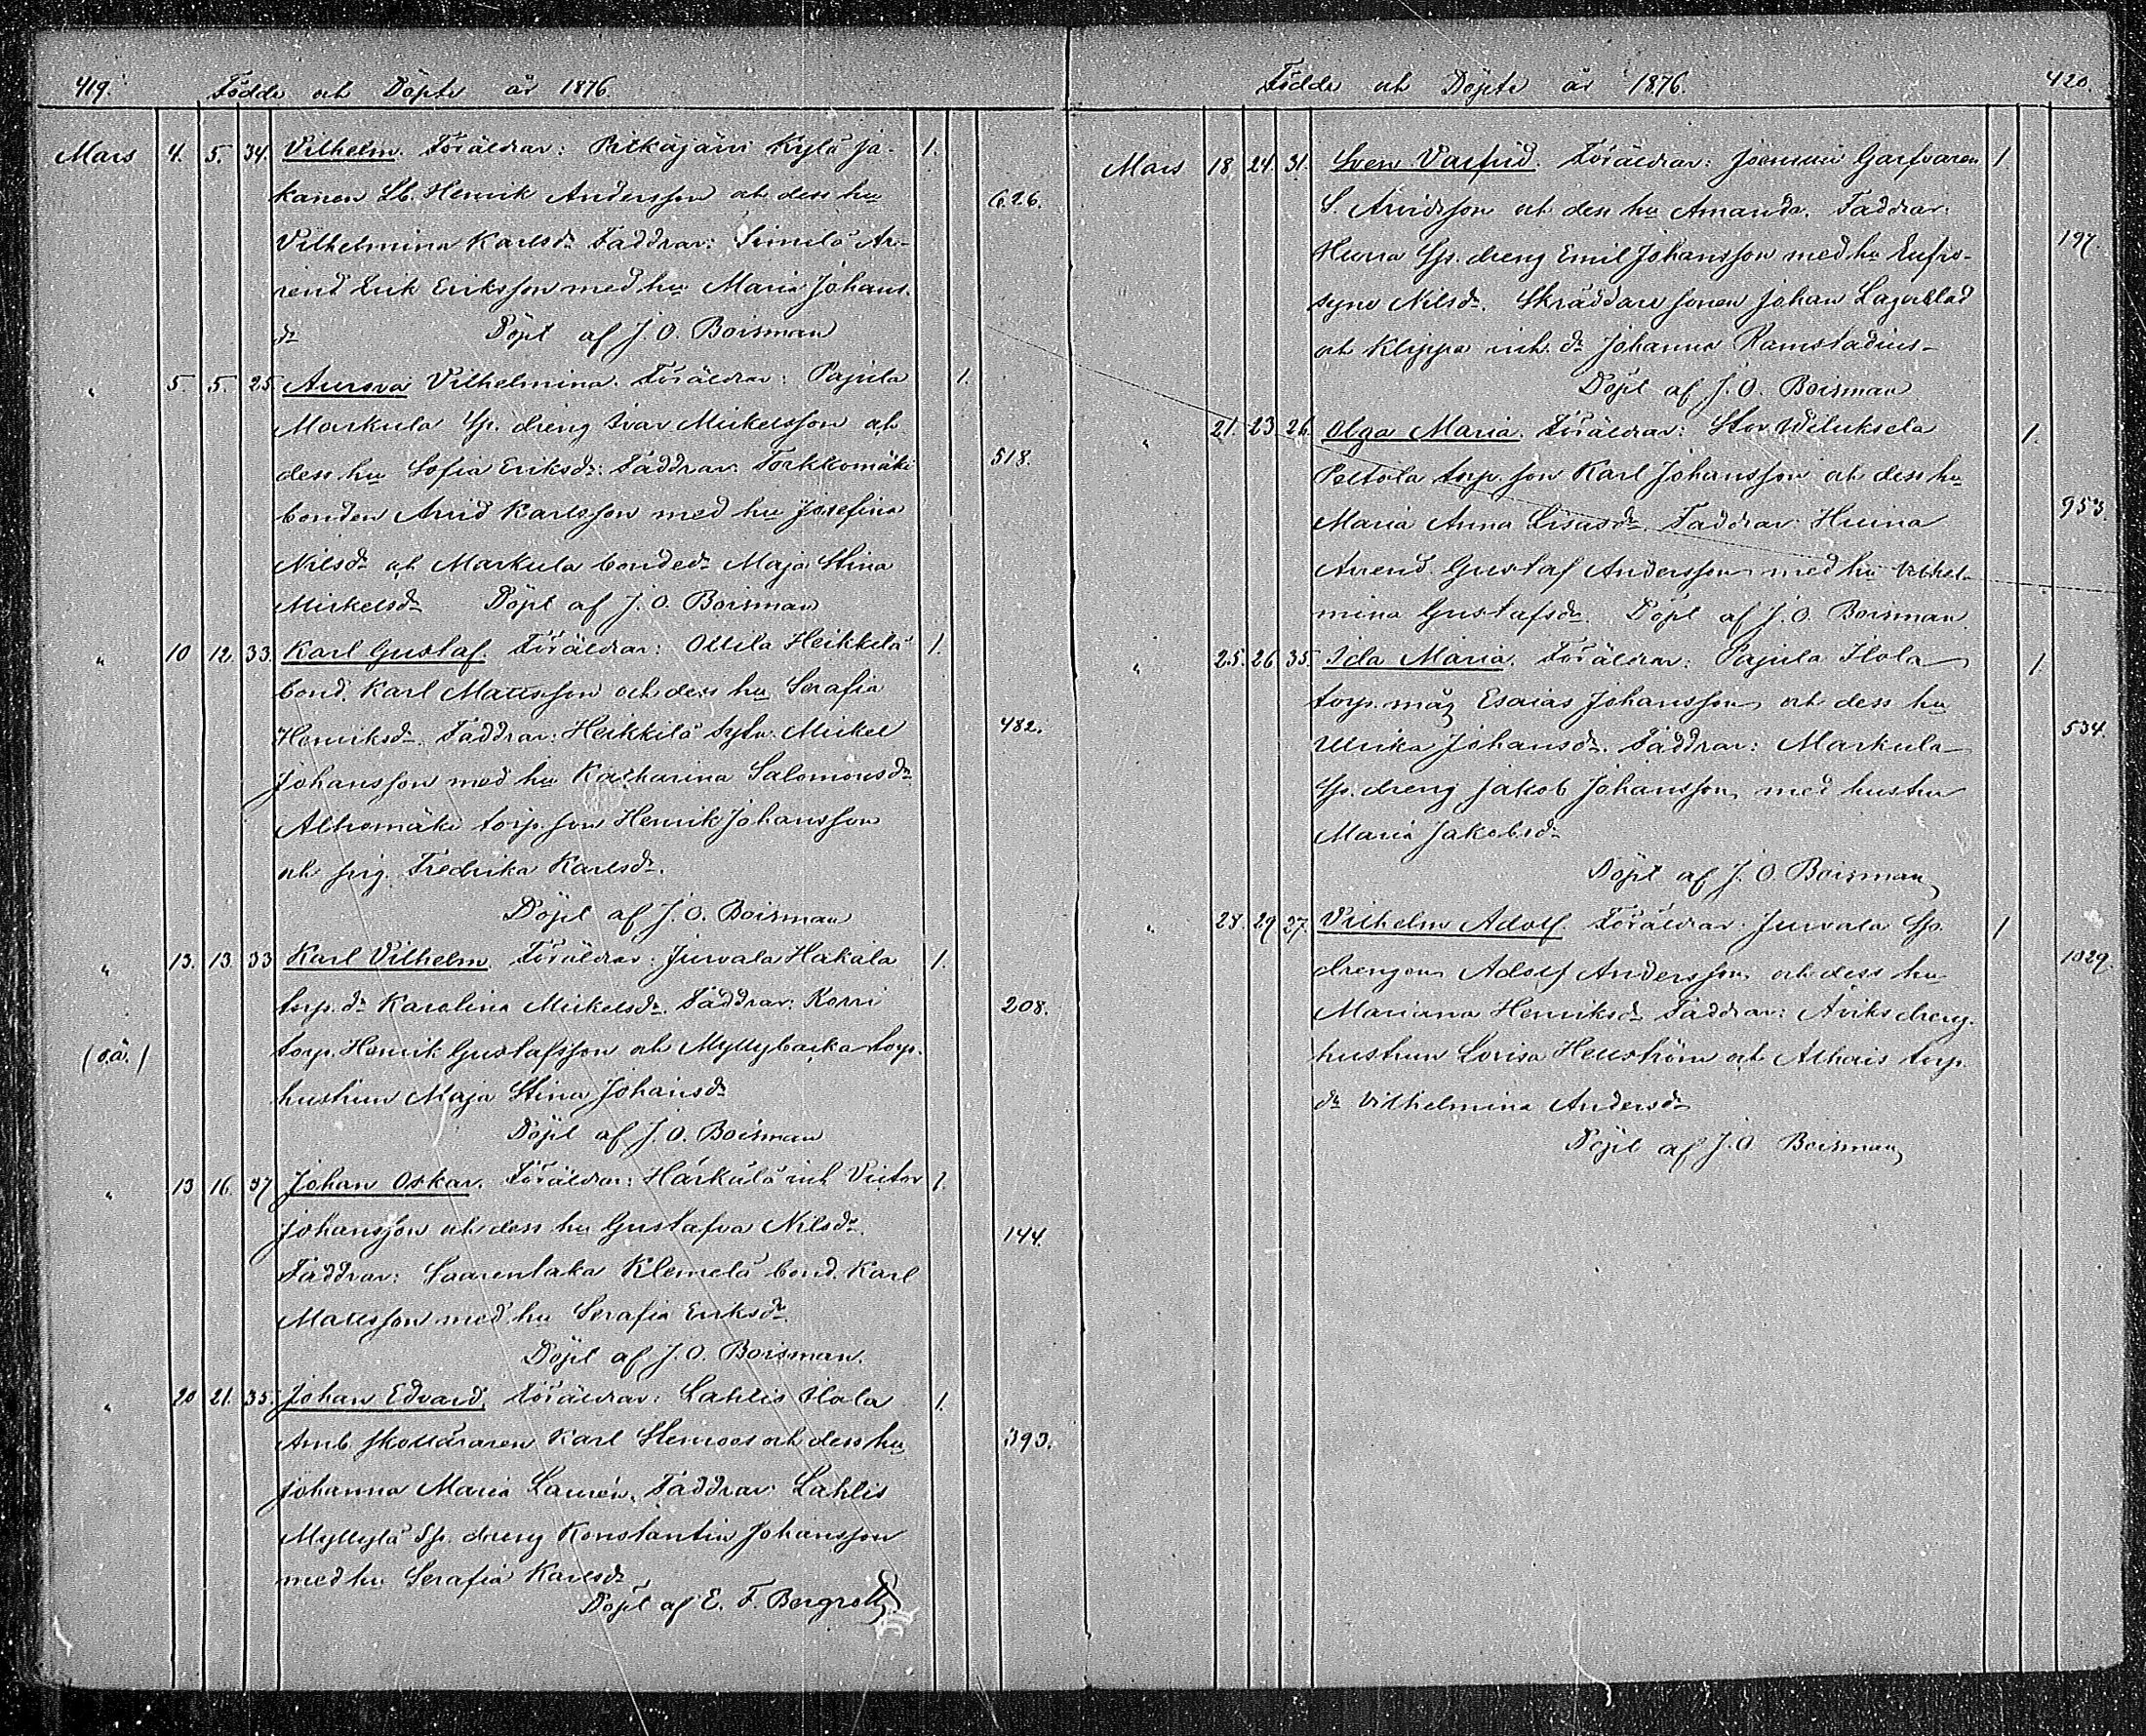 419. Födde och Döpte år 1876.
Mars 4. 5. 34. Vilhelm. Föräldrar: Pitkäjärvi Kylä Ja- 1.
kanen Lb. Henrik Andersson och dess hu 626.
Vilhelmina Karlsdr Faddrar: Simila Ar-
rend. Erik Eriksson med hu Maria Johans-
dr Döpt af J. O. Boisman
" 5. 5. 25 Aurora Vilhelmina. Föräldrar: Pajula 1.
Markula Sp. dreng Ivar Mickelsson och
dess hu Sofia Eriksdr. Faddrar: Torkkomäki 518.
bonden Arvid Karlsson med hu Josefina
Nilsdr och Markula bondedr Maja Stina
Mickelsdr Döpt af J. O. Boisman
" 10 12. 33. Karl Gustaf. Föräldrar: Ollila Heikkilä 1.
bond. Karl Mattsson och dess hu Serafia
Henriksdr. Faddrar: Heikkilä sytn. Mickel 482.
Johansson med hu Katharina Salomonsdr
Alhomäki torp. son Henrik Johansson
och pig. Fredrika Karlsdr.
Döpt af J. O. Boisman
" 13. 13 33 Karl Vilhelm. Föräldrar: Jurvala Hakala 1.
torp. dr Karolina Mickelsdr. Faddrar: Korri 208.
(o.ä.) torp. Henrik Gustafsson och Myllybacka torp.
hustrun Maja Stina Johansdr
Döpt af J. O. Boisman
" 13 16. 37 Johan Oskar. Föräldrar: Härkälä inh Victor 1.
Johansson och dess hu Gustafva Nilsdr. 144.
Faddrar: Saarentaka Klemelä bond. Karl
Mattsson med hu Serafia Eriksdr.
Döpt af J. O. Boisman.
" 20 21. 35. Johan Edvard. Föräldrar: Lahlis Ilola 1.
Amb. skollararen Karl Stenroos och dess hu 393.
Johanna Maria Laurén. Faddrar: Lahlis
Myllylä Sp. dreng Konstantin Johansson
med hu Serafia Karlsdr
Döpt af E. F. Bergroth
Födde och Döpte år 1876. 420.
Mars 18. 24. 31. Sven Varfrid. Föräldrar: Joensuu Garfvaren 1
S. Arvidsson och dess hu Amanda. Faddrar:
Sp. dreng Emil Johansson med hu Eufro- 197.
syne Nilsdr. Skräddare sonen Johan Lagerblad
och Klippa inh. dr Johanna Ramstadius
Döpt af J. O. Boisman
" 21. 23 26. Olga Maria. Föräldrar: Stor Wiluksela 1.
Peltola torp. son Karl Johansson och dess hu
Maria Anna Lisasdr. Faddrar: Huina 953.
Arrend. Gustaf Andersson med hu Vilhel-
mina Gustafsdr. Döpt af J. O. Boisman
" 25. 26 35. Ida Maria. Föräldrar: Pajula Ilola 1.
torp. måg Esaias Johansson och dess hu
Ulrika Johansdr. Faddrar: Markula 534.
Sp. dreng Jakob Johansson med hustru
Maria Jakobsdr
Döpt af J. O. Boisman
" 28. 29. 27. Vilhelm Adolf. Föräldrar: Jurvala Sp. 1
drengen Adolf Andersson och dess hu 1029.
Mariana Henriksdr Faddrar: Äriks dreng-
hustrun Lovisa Hellström och Alhais torp.
dr Vilhelmina Andersdr
Döpt af J. O. Boisman